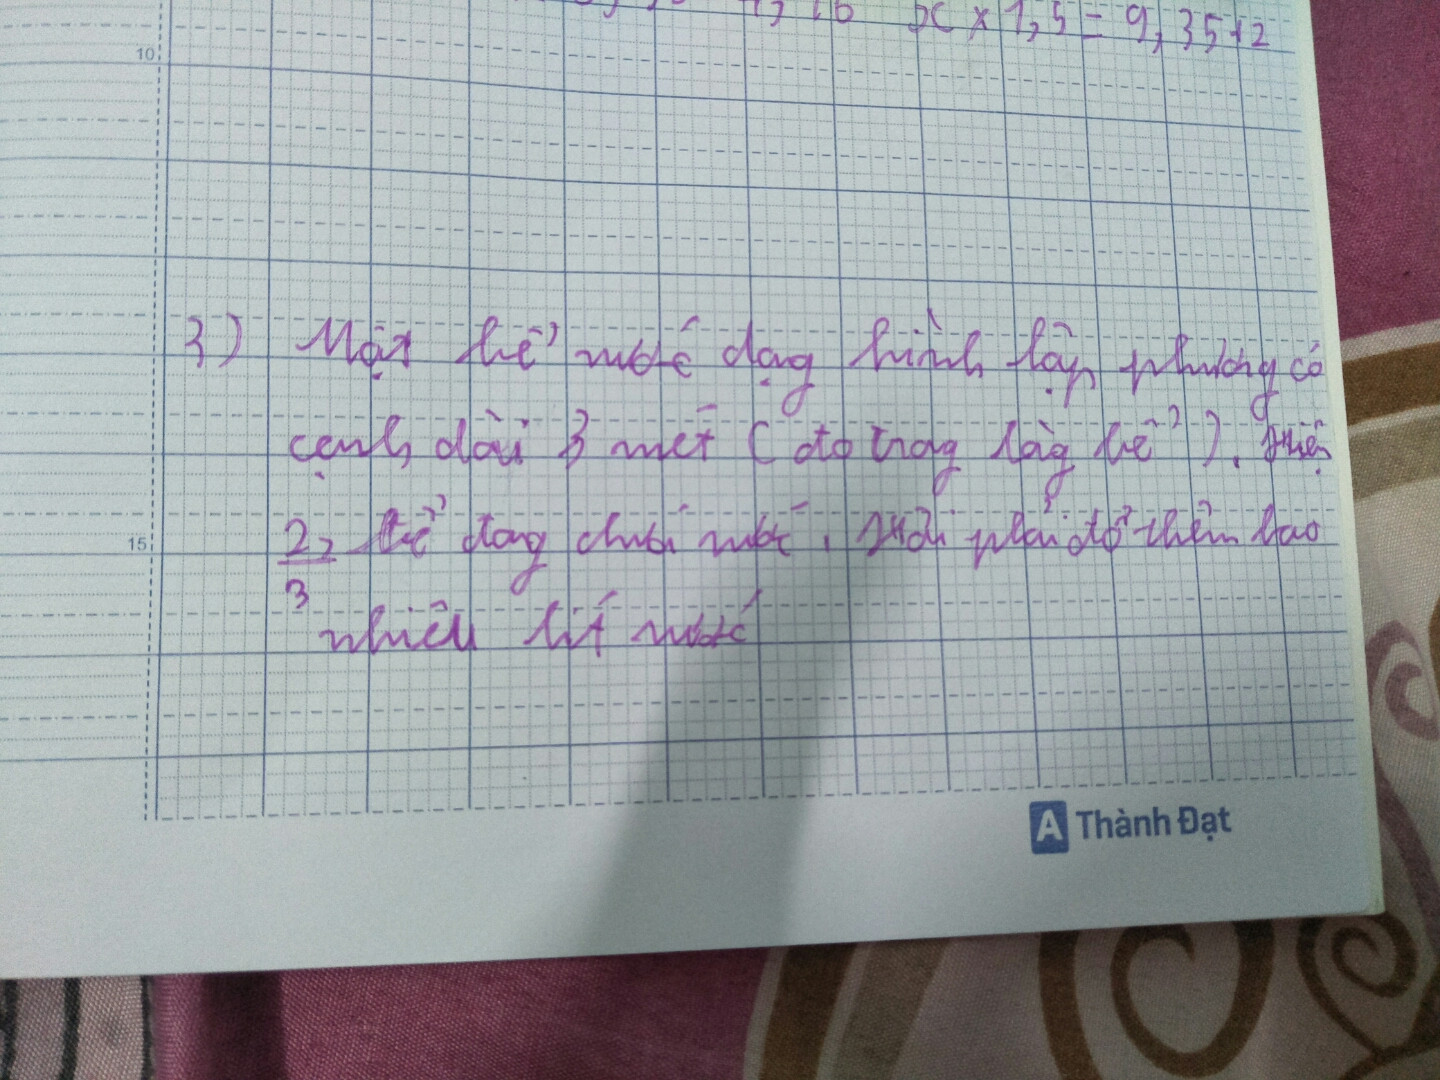 x × 1,5 = 9,35 + 2
10
3) Một bể nước dạng hình lập phương có
cạnh dài 3 mét (đo trong lòng bể). Hiện
2/3 bể đang chứa nước. Hỏi phải đổ thêm bao
15
nhiêu lít nước
A Thành Đạt